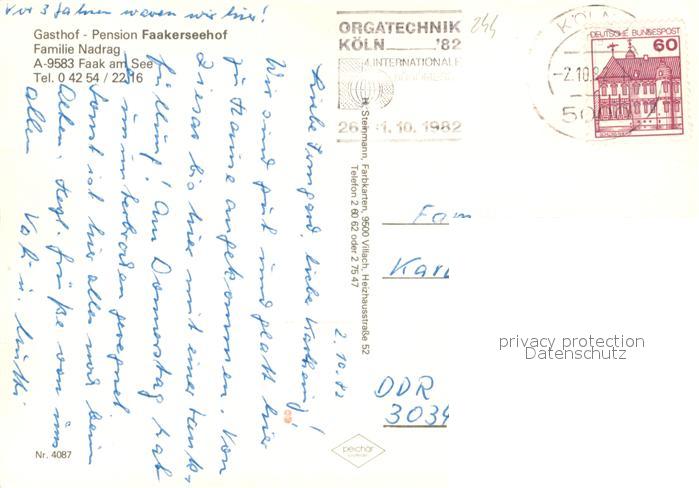 Vor 3 Jahren waren wir hier!
Gasthof - Pension Faakerseehof
Familie Nadrag
A-9583 Faak am See
Tel. 0 42 54 / 22 16
ORGATECHNIK
KÖLN '82
4. INTERNATIONALE
26. 10. 1982
244
KÖLN
-2.10.82
5000
DEUTSCHE BUNDESPOST
60
H. Steinmann, Farbkarten, 9500 Villach, Heizhausstraße 52
Telefon 2 60 62 oder 2 75 47
2.10.82
Liebe Irmgard, liebe
Wir sind gut und glatt hier
zu Hause angekommen. Von
Diesar bis hier mit einer Tank-
füllung! Am Donnerstag hat
es ununterbrochen geregnet.
Sonst ist hier alles noch beim
Alten. Herzl. Grüße von uns
allen Vati u. Mutti
Fam
Karl
DDR
3034
privacy protection
Datenschutz
Nr. 4087